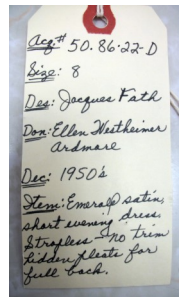 Acq# 50.86.22-D
Size: 8
Des: Jacques Fath
Don: Ellen Westheimer
Ardmore
Dec: 1950's
Item: Emerald satin,
short evening dress.
Strapless - no trim
hidden pleats for
full back.